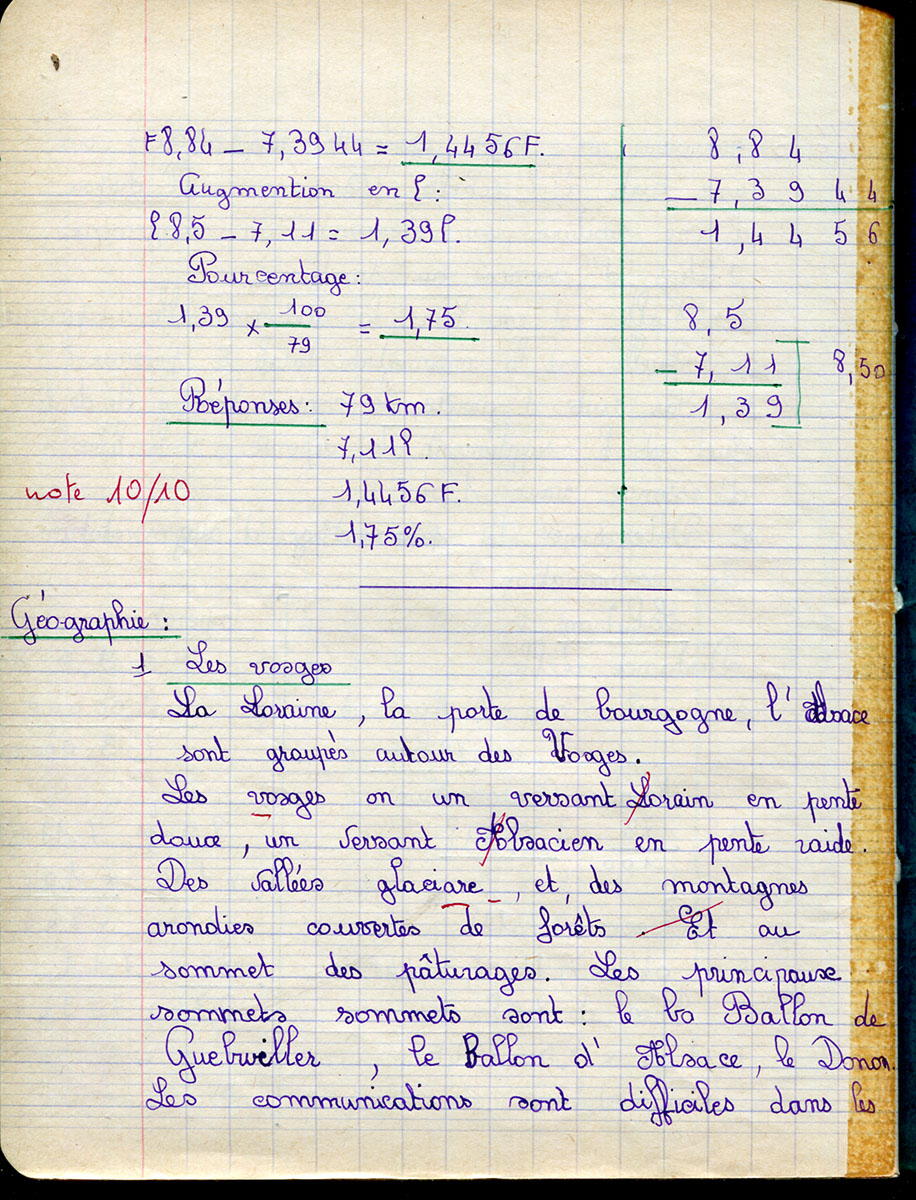 F8,84 – 7,3944 = 1,4456 F.
Augmention en l :
l 8,5 – 7,11 = 1,39 l.
Pourcentage :
1,39 × 100/79 = 1,75.
Réponses : 79 km.
7,11 l.
note 10/10
1,4456 F.
1,75%.
8,84
– 7,3944
1,4456
8,5
– 7,11
8,50
1,39
Géographie :
1 Les vosges
La Loraine, la porte de bourgogne, l'Alsace
sont groupés autour des Vosges.
Les vosges on un versant Lorain en pente
douce, un versant Alsacien en pente raide.
Des vallées glaciare, et, des montagnes
arondies couvertes de forêts. Et au
sommet des pâturages. Les principause
sommets sommets sont : le bo Ballon de
Guebwiller, le Ballon d'Alsace, le Donon.
Les communications sont difficiles dans les